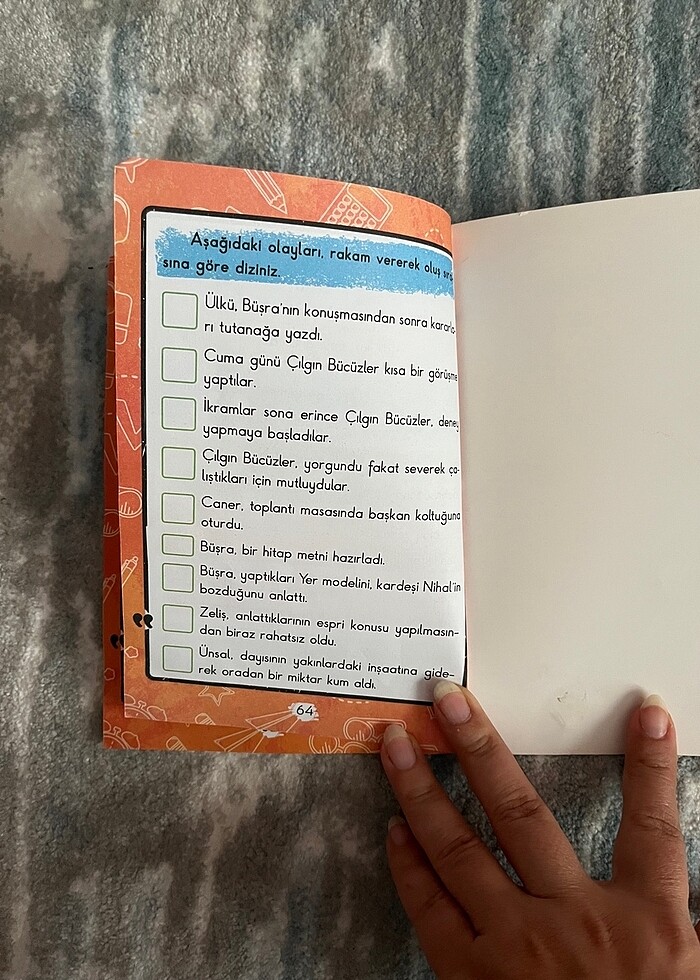 Aşağıdaki olayları, rakam vererek oluş sıra
sına göre diziniz.
Ülkü, Büşra'nın konuşmasından sonra kararla-
rı tutanağa yazdı.
Cuma günü Çılgın Bücüzler kısa bir görüşme
yaptılar.
İkramlar sona erince Çılgın Bücüzler, deney
yapmaya başladılar.
Çılgın Bücüzler, yorgundu fakat severek ça-
lıştıkları için mutluydular.
Caner, toplantı masasında başkan koltuğuna
oturdu.
Büşra, bir hitap metni hazırladı.
Büşra, yaptıkları Yer modelini, kardeşi Nihal'in
bozduğunu anlattı.
Zeliş, anlattıklarının espri konusu yapılmasın-
dan biraz rahatsız oldu.
Ünsal, dayısının yakınlardaki inşaatına gide-
rek oradan bir miktar kum aldı.
64